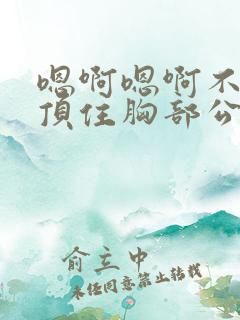 嗯啊嗯啊不
顶住胸部公
俞立中
未经同意禁止转载